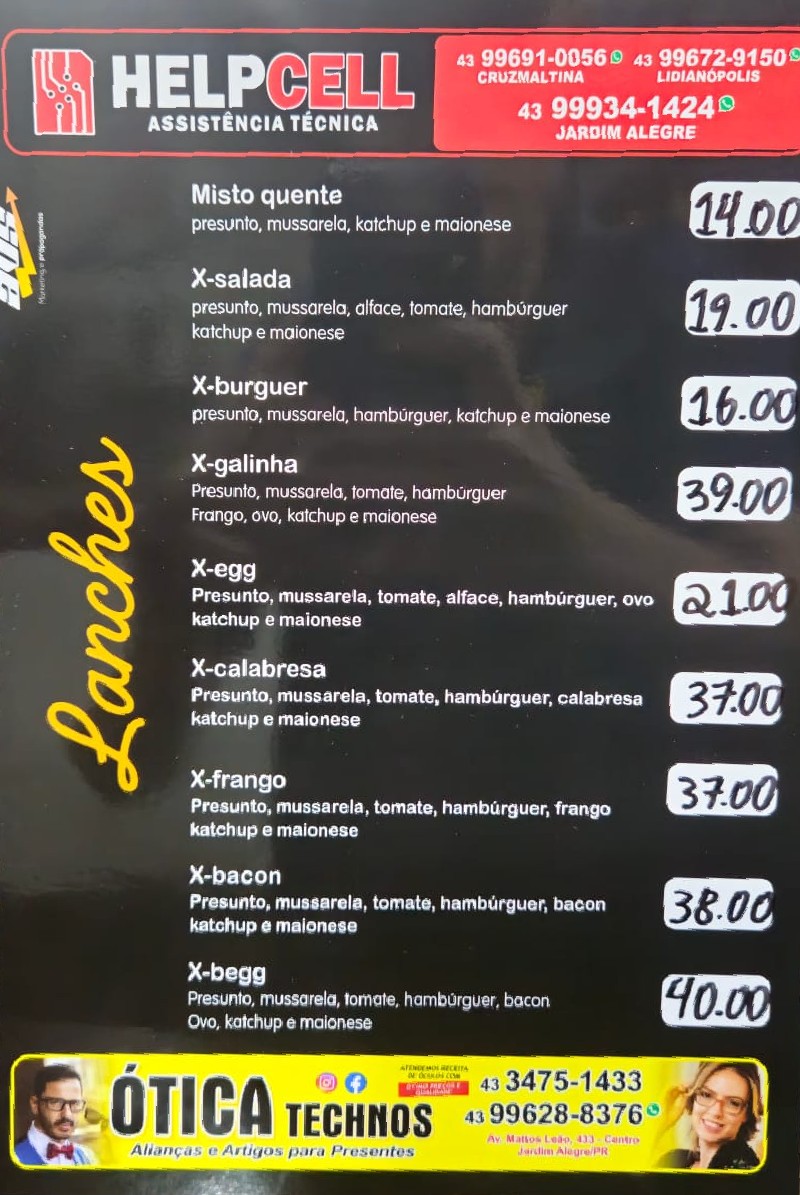 HELPCELL
ASSISTÊNCIA TÉCNICA
43 99691-0056 43 99672-9150
CRUZMALTINA LIDIANÓPOLIS
43 99934-1424
JARDIM ALEGRE
Marketing e propagandas
Lanches
Misto quente 14.00
presunto, mussarela, katchup e maionese
X-salada
presunto, mussarela, alface, tomate, hambúrguer 19.00
katchup e maionese
X-burguer 16.00
presunto, mussarela, hambúrguer, katchup e maionese
X-galinha
Presunto, mussarela, tomate, hambúrguer 39.00
Frango, ovo, katchup e maionese
X-egg
Presunto, mussarela, tomate, alface, hambúrguer, ovo 21.00
katchup e maionese
X-calabresa
Presunto, mussarela, tomate, hambúrguer, calabresa 37.00
katchup e maionese
X-frango
Presunto, mussarela, tomate, hambúrguer, frango 37.00
katchup e maionese
X-bacon
Presunto, mussarela, tomate, hambúrguer, bacon 38.00
katchup e maionese
X-begg
Presunto, mussarela, tomate, hambúrguer, bacon 40.00
Ovo, katchup e maionese
ÓTICA TECHNOS
Alianças e Artigos para Presentes
ATENDEMOS RECEITA
DE ÓCULOS COM
ÓTIMO PREÇOS E
QUALIDADE
43 3475-1433
43 99628-8376
Av. Mattos Leão, 433 - Centro
Jardim Alegre/PR